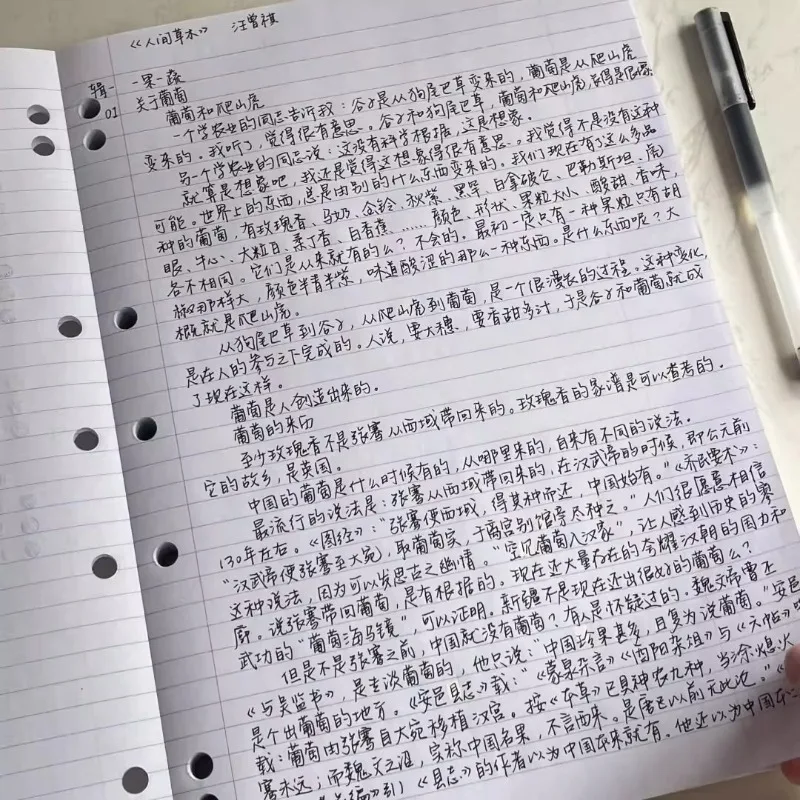 《人间草木》 汪曾祺
辑一 一果一蔬
01 关于葡萄
葡萄和爬山虎
一个学农业的同志告诉我：谷子是从狗尾巴草变来的，葡萄是从爬山虎
变来的。我听了，觉得很有意思。谷子和狗尾巴草，葡萄和爬山虎，长得是很像
另一个学农业的同志说：这没有科学根据，这是想象。
就算是想象吧，我还是觉得这想象得很有意思。我觉得不是没有这种
可能。世界上的东西，总是由别的什么东西变来的。我们现在有了这么多品
种的葡萄，有玫瑰香、马奶、金铃、秋紫、黑罕、白拿破仑、巴勒斯坦、虎
眼、牛心、大粒白、柔丁香、白香蕉……颜色、形状、果粒大小、酸甜、香味，
各不相同。它们是从来就有的么？不会的。最初一定只有一种果粒只有胡
椒那样大，颜色半青半紫，味道酸涩的那么一种东西。是什么东西呢？大
概就是爬山虎。
从狗尾巴草到谷子，从爬山虎到葡萄，是一个很漫长的过程。这种变化，
是在人的参与之下完成的。人说，要大穗，要香甜多汁，于是谷子和葡萄就成
了现在这样。
葡萄是人创造出来的。
葡萄的来历
至少玫瑰香不是张骞从西域带回来的。玫瑰香的家谱是可以查考的。
它的故乡，是英国。
中国的葡萄是什么时候有的，从哪里来的，自来有不同的说法。
最流行的说法是：张骞从西域带回来的，在汉武帝的时候，即公元前
130年左右。《图经》：“张骞使西域，得其种而还，中国始有。”《齐民要术》：
“汉武帝使张骞至大宛，取葡萄实，于离宫别馆旁尽种之。”人们很愿意相信
这种说法，因为可以发思古之幽情。“空见葡萄入汉家”，让人感到历史的寥
廓。说张骞带回葡萄，是有根据的。现在还大量存在的夸耀汉朝的国力和
武功的“葡萄海马镜”，可以证明。新疆不是现在还出很好的葡萄么？
但是不是张骞之前，中国就没有葡萄？有人是怀疑过的。魏文帝曹丕
《与吴监书》，是专谈葡萄的，他只说：“中国珍果甚多，且复为说葡萄。”安邑
是个出葡萄的地方。《安邑县志》载：“《蒙泉杂言》《酉阳杂俎》与《六帖》
载：葡萄由张骞自大宛移植汉宫。按《本草》已具神农九种，当涂熄火
骞未远；而魏文之诏，实称中国名果，不言西来。是唐已以前无此论。”
《县志》的作者以为中国本来就有。他还以为中国本